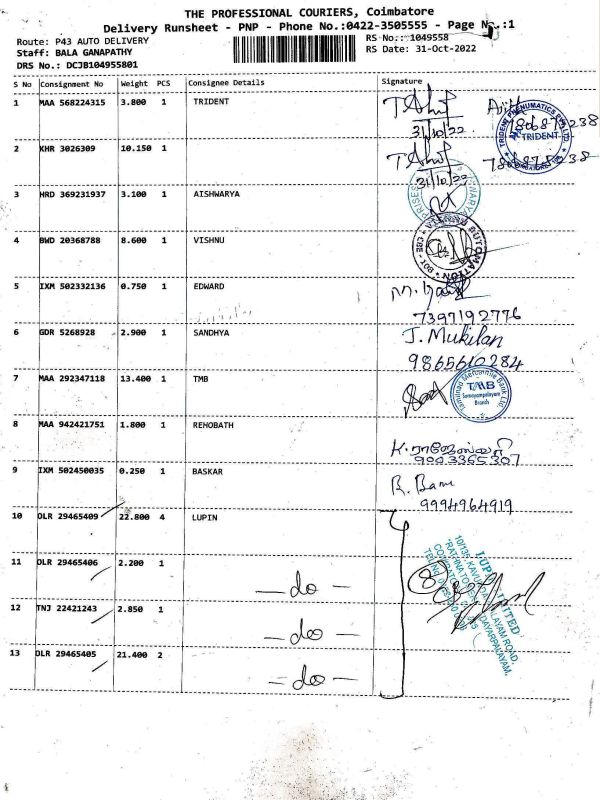 THE PROFESSIONAL COURIERS, Coimbatore
Delivery Runsheet - PNP - Phone No.:0422-3505555 - Page No.:1
Route: P43 AUTO DELIVERY
RS No.: 1049558
Staff: BALA GANAPATHY
RS Date: 31-Oct-2022
DRS No.: DCJB104955801
S No Consignment No Weight PCS Consignee Details Signature
1 MAA 568224315 3.800 1 TRIDENT
31/10/22
TRIDENT
2 KHR 3026309 10.150 1
31/10/22
3 HRD 369231937 3.100 1 AISHWARYA
4 BWD 20368788 8.600 1 VISHNU
5 IXM 502332136 0.750 1 EDWARD
7397192776
6 GDR 5268928 2.900 1 SANDHYA J. Mukilan
9865610284
7 MAA 292347118 13.400 1 TMB
Tamilnad Mercantile Bank Ltd.
TMB
Branch
8 MAA 942421751 1.800 1 REHOBATH
K. ராஜேஸ்வரி
9003365307
9 IXM 502450035 0.250 1 BASKAR
9994964919
10 DLR 29465409 22.800 4 LUPIN
LUPIN LIMITED
11 DLR 29465406 2.200 1
— do —
12 TNJ 22421243 2.850 1
— do —
13 DLR 29465405 21.400 2
— do —